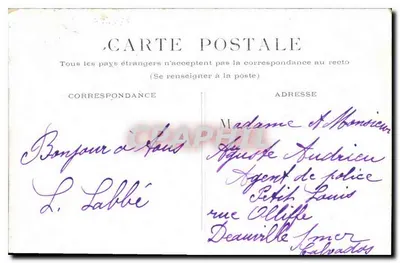 CARTE POSTALE
Tous les pays étrangers n'acceptent pas la correspondance au recto
(Se renseigner à la poste)
CORRESPONDANCE
ADRESSE
Bonjour a tous
L. Labbé
Madame & Monsieur
Aguste Andrieu
Agent de police
Petit Louis
rue Olliffe
Deauville s/mer
Calvados